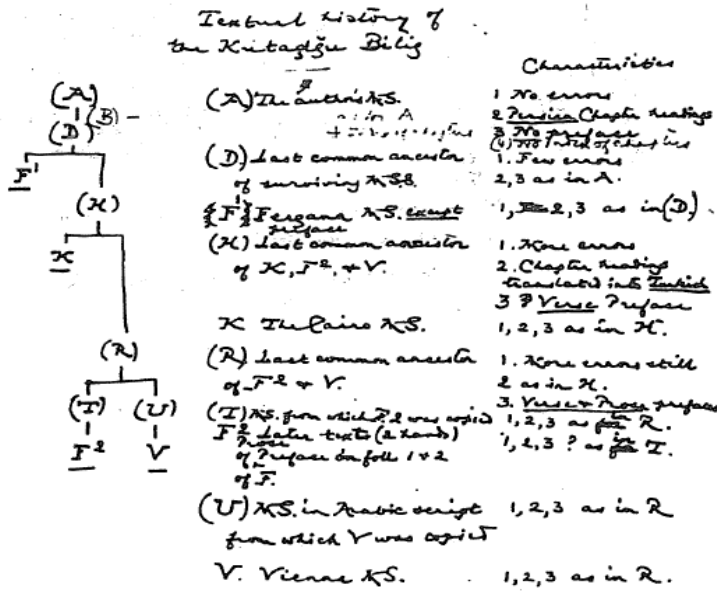 Textual history of
the Kutadğu Bilig
Characteristics
(A) The author's MS.
1 No errors
2 Persian Chapter headings
3 No preface
(4) No index of chapters
(D) Last common ancestor
of surviving MSS.
1. Few errors
2,3 as in A.
F¹ Fergana MS. except
preface
1, 2,3 as in (D)
(H) Last common ancestor
of K, F², & V.
1. More errors
2. Chapter headings
translated into Turkish
3 ? Verse Preface
K The Cairo MS.
1, 2, 3 as in H.
(R) Last common ancestor
of F² & V.
1. More errors still
2 as in H.
3. Verse & Prose prefaces
(T) MS. from which F.2 was copied
1, 2, 3 as in R.
F² Later texts (2 hands)
of Prose Preface on foll 1 & 2
of F.
1, 2, 3 ? as in T.
(U) MS. in Arabic script
from which V was copied
1, 2, 3 as in R
V. Vienna MS.
1, 2, 3 as in R.
(A)
(B)
(D)
F¹
(H)
K
(R)
(T) (U)
F² V